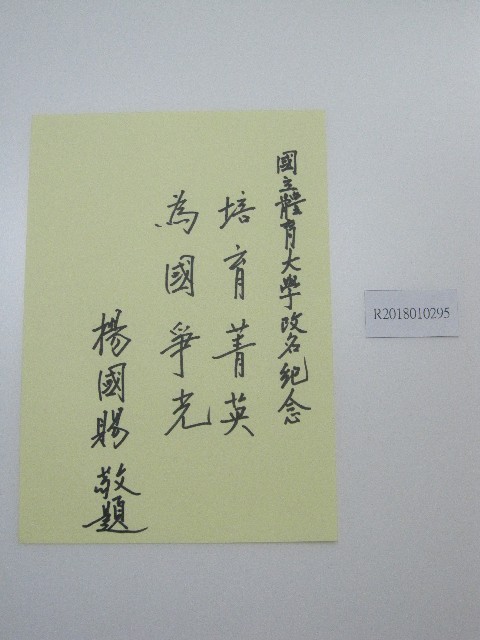 國立體育大學改名紀念
培育菁英
為國爭光
楊國賜
敬題
R2018010295